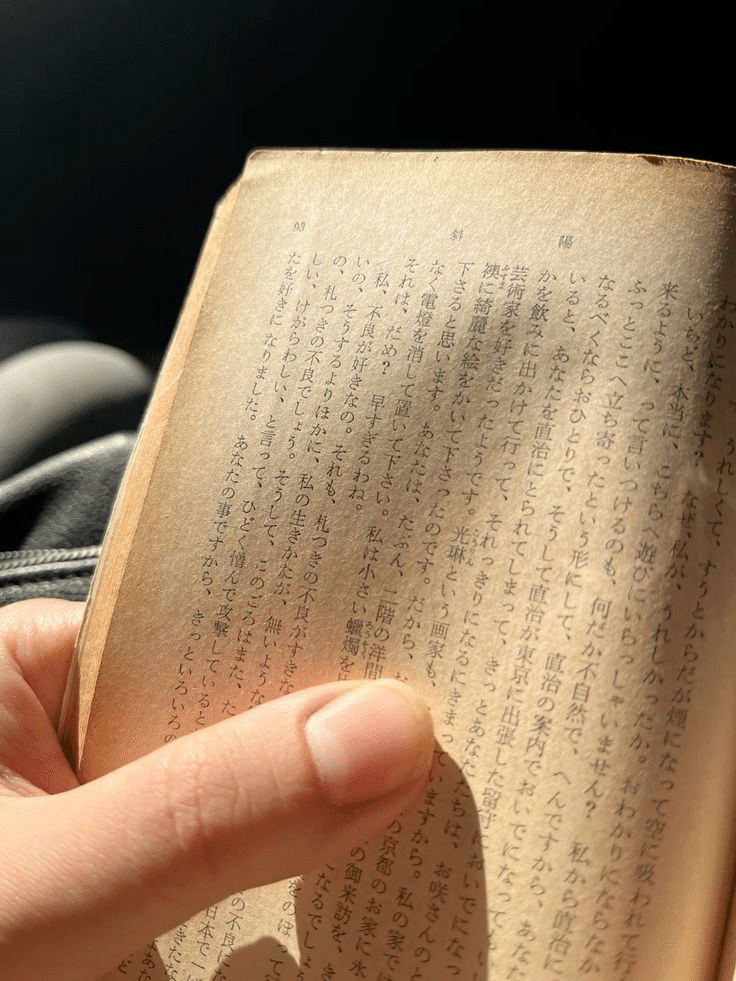 93 斜陽
うれしくて、すうとからだが煙になって空に吸われて行
わかりになります? なぜ、私が、うれしかったか。おわかりにならなか
いちど、本当に、こちらへ遊びにいらっしゃいません? 私から直治に
来るように、って言いつけるのも、何だか不自然で、へんですから、あなた
ふっとここへ立ち寄ったという形にして、直治の案内でおいでになっても
なるべくならおひとりで、そうして直治が東京に出張した留守においでになって
いると、あなたを直治にとられてしまって、きっとあなたたちは、お咲さんのと
かを飲みに出かけて行って、それっきりになるにきまっていますから。私の家では
芸術家を好きだったようです。光琳という画家も、の京都のお家に永
襖に綺麗な絵をかいて下さったのです。だから、の御来訪を、き
下さると思います。あなたは、たぶん、二階の洋間なるでしょ
なく電燈を消して置いて下さい。私は小さい蠟燭ををのぼって行
それは、だめ? 早すぎるわね。
私、不良が好きなの。それも、札つきの不良がすきな
いの、そうするよりほかに、私の生きかたが、無いようなの不良にな
の、札つきの不良でしょう。そうして、このごろはまた、た日本で一
しい、けがらわしい、と言って、ひどく憎んで攻撃していると
たを好きになりました。あなたの事ですから、きっといろいろの